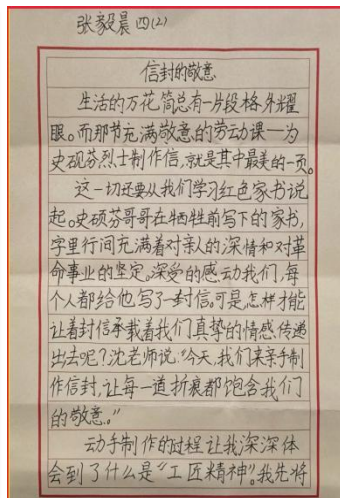 张毅晨 四(2)
信封的敬意
生活的万花筒总有一片段格外耀
眼。而那节充满敬意的劳动课—为
史砚芬烈士制作信,就是其中最美的一页。
这一切还要从我们学习红色家书说
起。史硕芬哥哥在牺牲前写下的家书,
字里行间充满着对亲人的深情和对革
命事业的坚定。深受的感动我们,每
个人都给他写了一封信。可是,怎样才能
让着封信承载着我们真挚的情感,传递
出去呢?沈老师说:“今天,我们来亲手制
作信封,让每一道折痕都饱含我们
的敬意。”
动手制作的过程,让我深深体
会到了什么是“工匠精神”。我先将